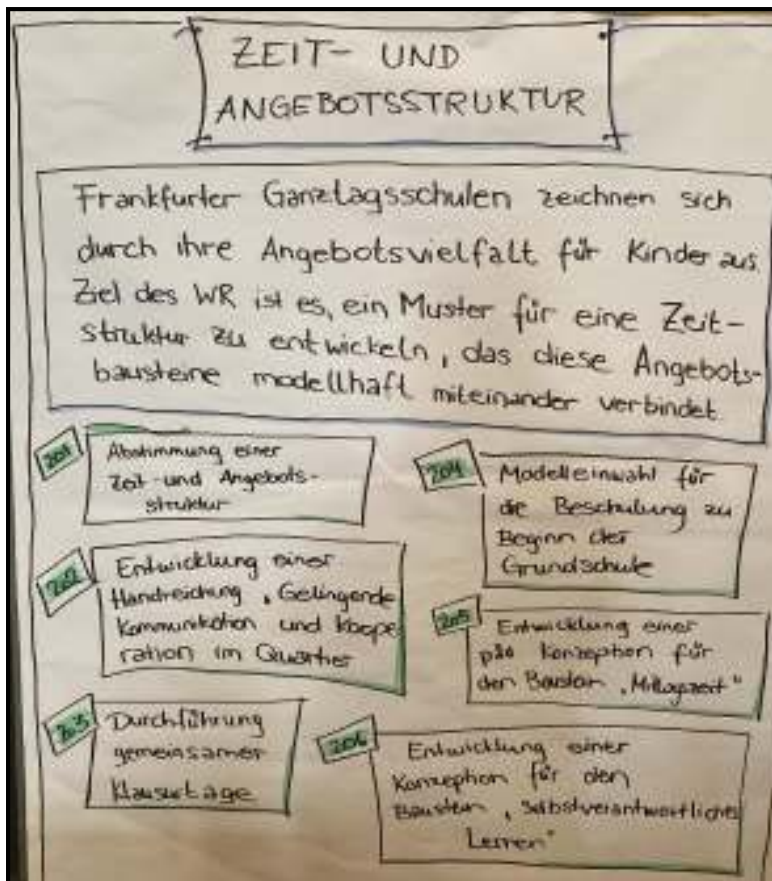 ZEIT- UND
ANGEBOTSSTRUKTUR
Frankfurter Ganztagsschulen zeichnen sich
durch ihre Angebotsvielfalt für Kinder aus.
Ziel des WR ist es, ein Muster für eine Zeit-
struktur zu entwickeln, das diese Angebots-
bausteine modellhaft miteinander verbindet
201
Abstimmung einer
Zeit- und Angebots-
struktur
202
Entwicklung einer
Handreichung „Gelingende
Kommunikation und Koope
ration im Quartier
203
Durchführung
gemeinsamer
Klausurtage
204
Modelleinwahl für
die Beschulung zu
Beginn der
Grundschule
205
Entwicklung einer
päd Konzeption für
den Baustein „Mittagszeit"
206
Entwicklung einer
Konzeption für den
Baustein „selbstverantwortliches
Lernen"